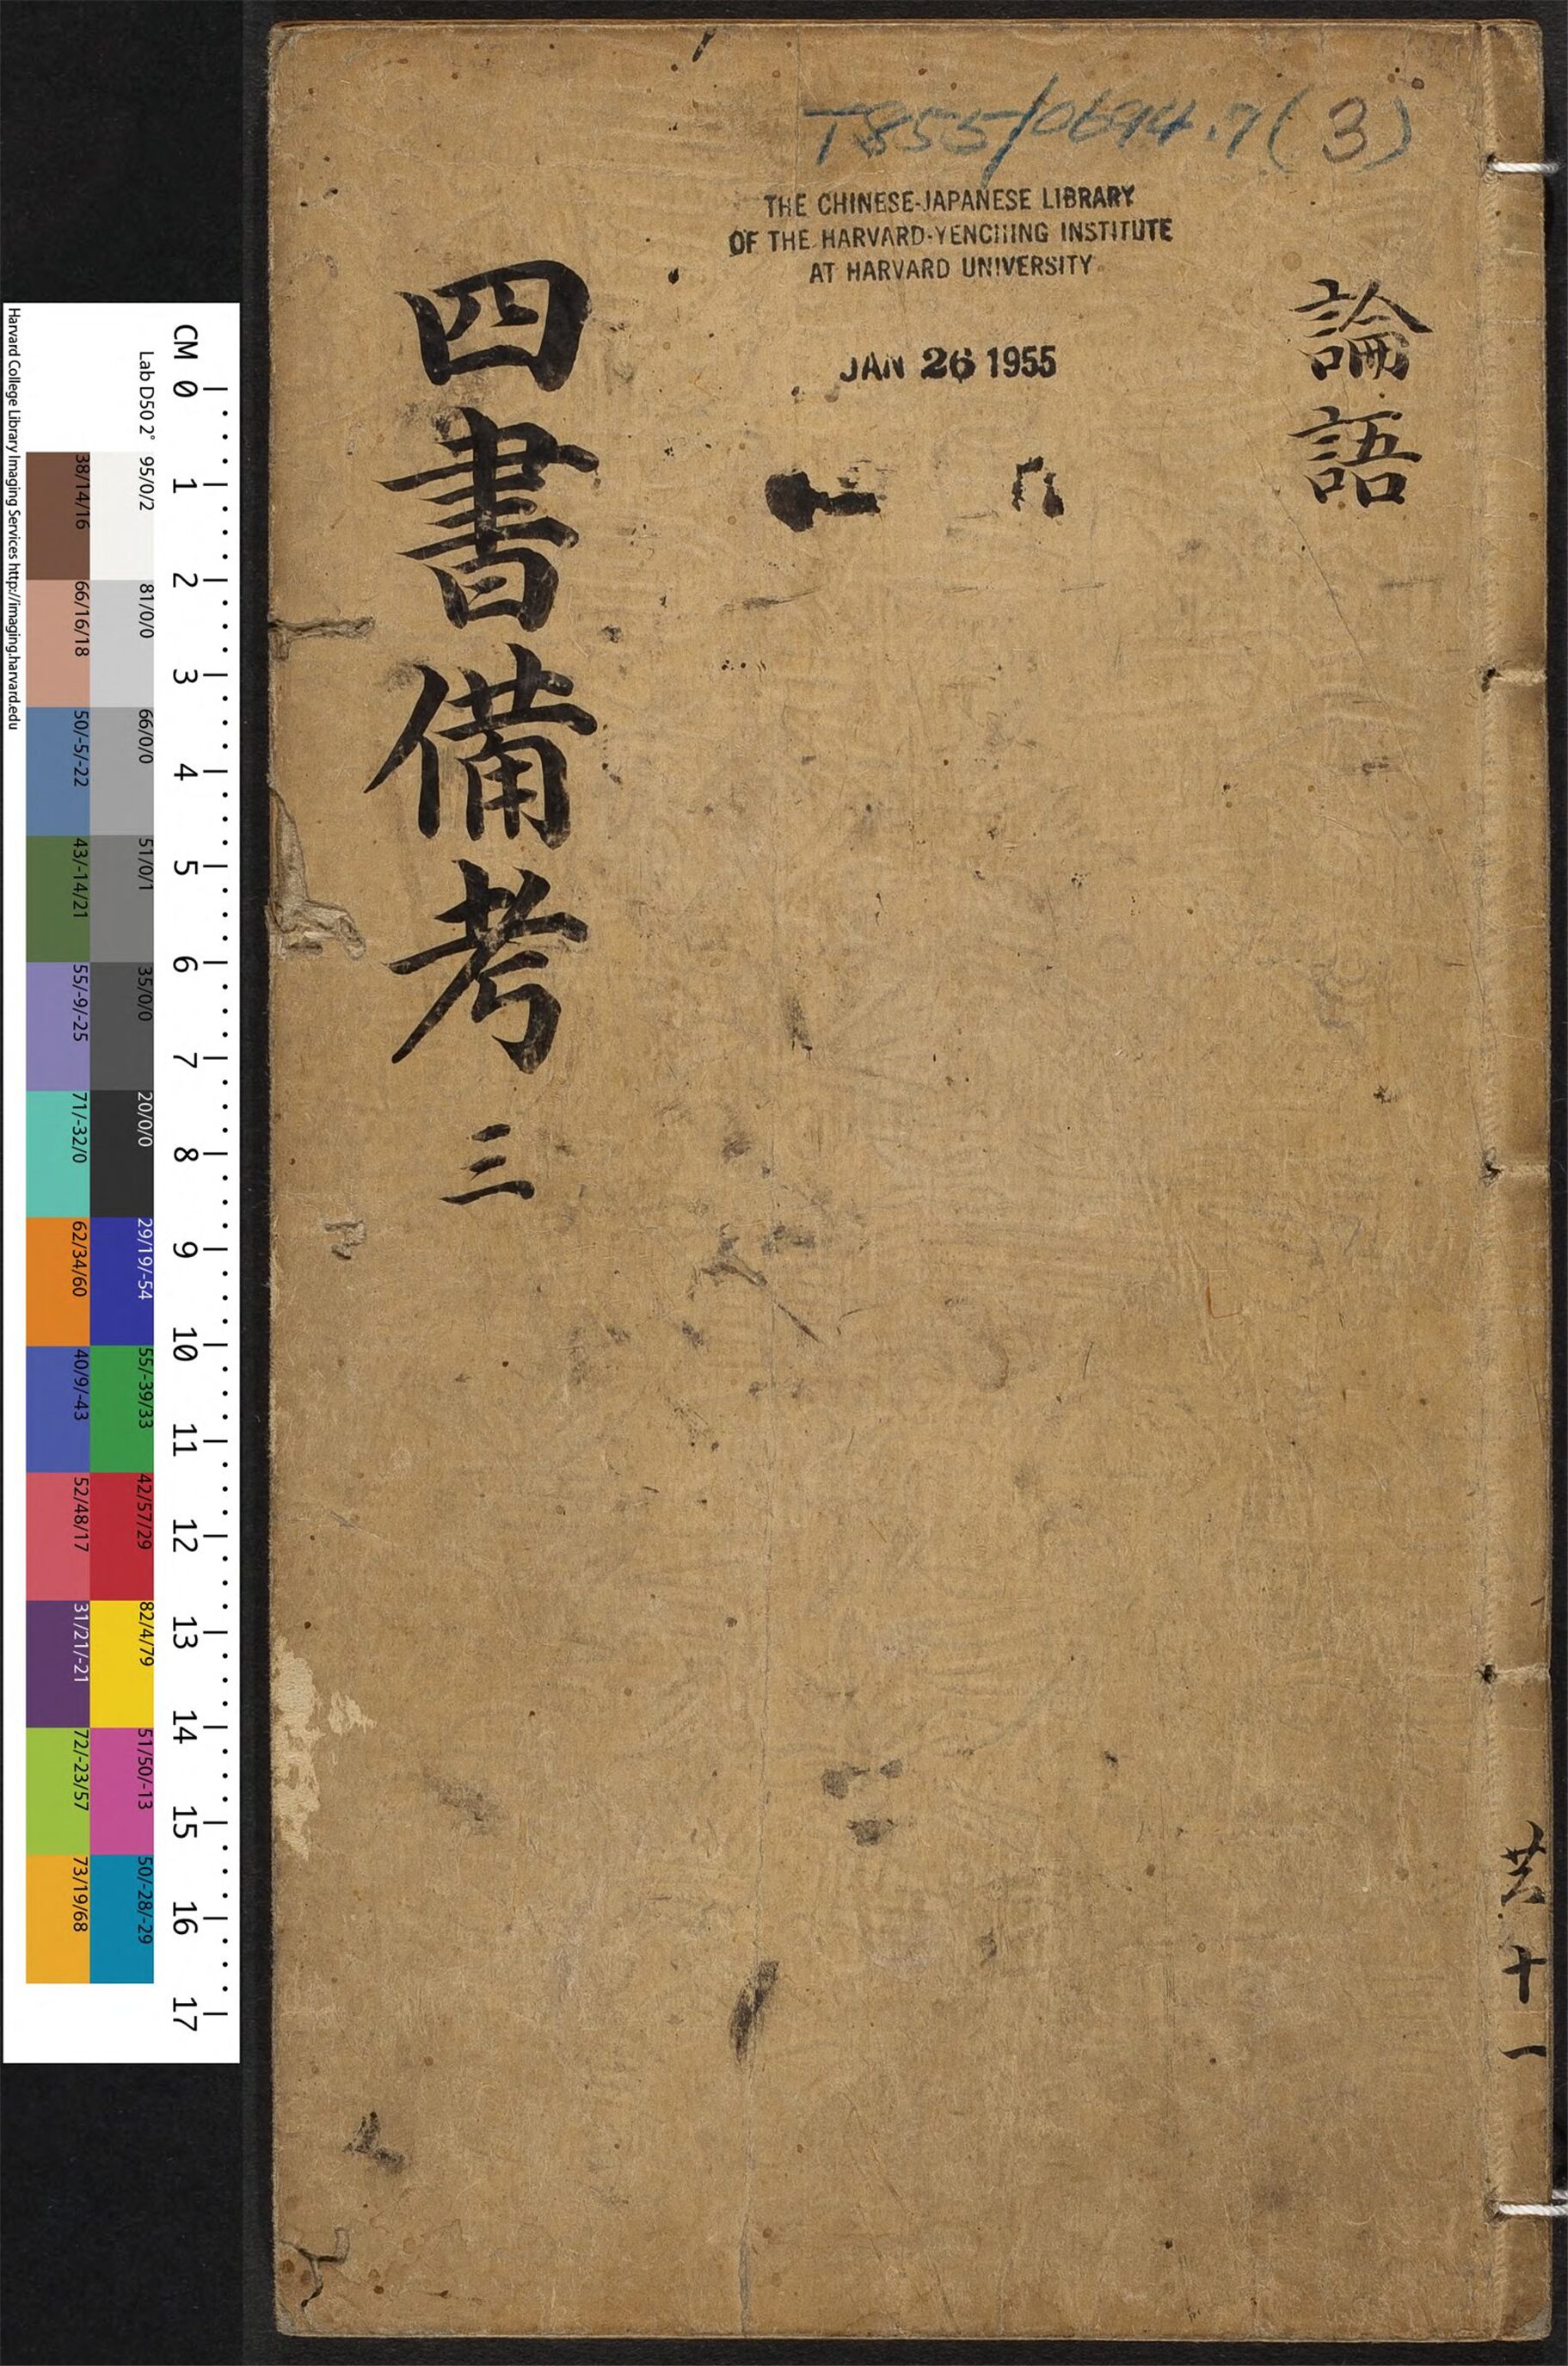 T855/0694.7(3)
THE CHINESE-JAPANESE LIBRARY
OF THE HARVARD-YENCHING INSTITUTE
AT HARVARD UNIVERSITY
JAN 26 1955
論語
四書備考 三
共十一
CM 0 1 2 3 4 5 6 7 8 9 10 11 12 13 14 15 16 17
Lab D50 2° 95/0/2 81/0/0 66/0/0 51/0/1 35/0/0 20/0/0 29/19/-54 55/-39/33 42/57/29 82/4/79 51/50/-13 50/-28/-29
38/14/16 66/16/18 50/-5/-22 43/-14/21 55/-9/-25 71/-32/0 62/34/60 40/9/-43 52/48/17 31/21/-21 72/-23/57 73/19/68
Harvard College Library Imaging Services http://imaging.harvard.edu